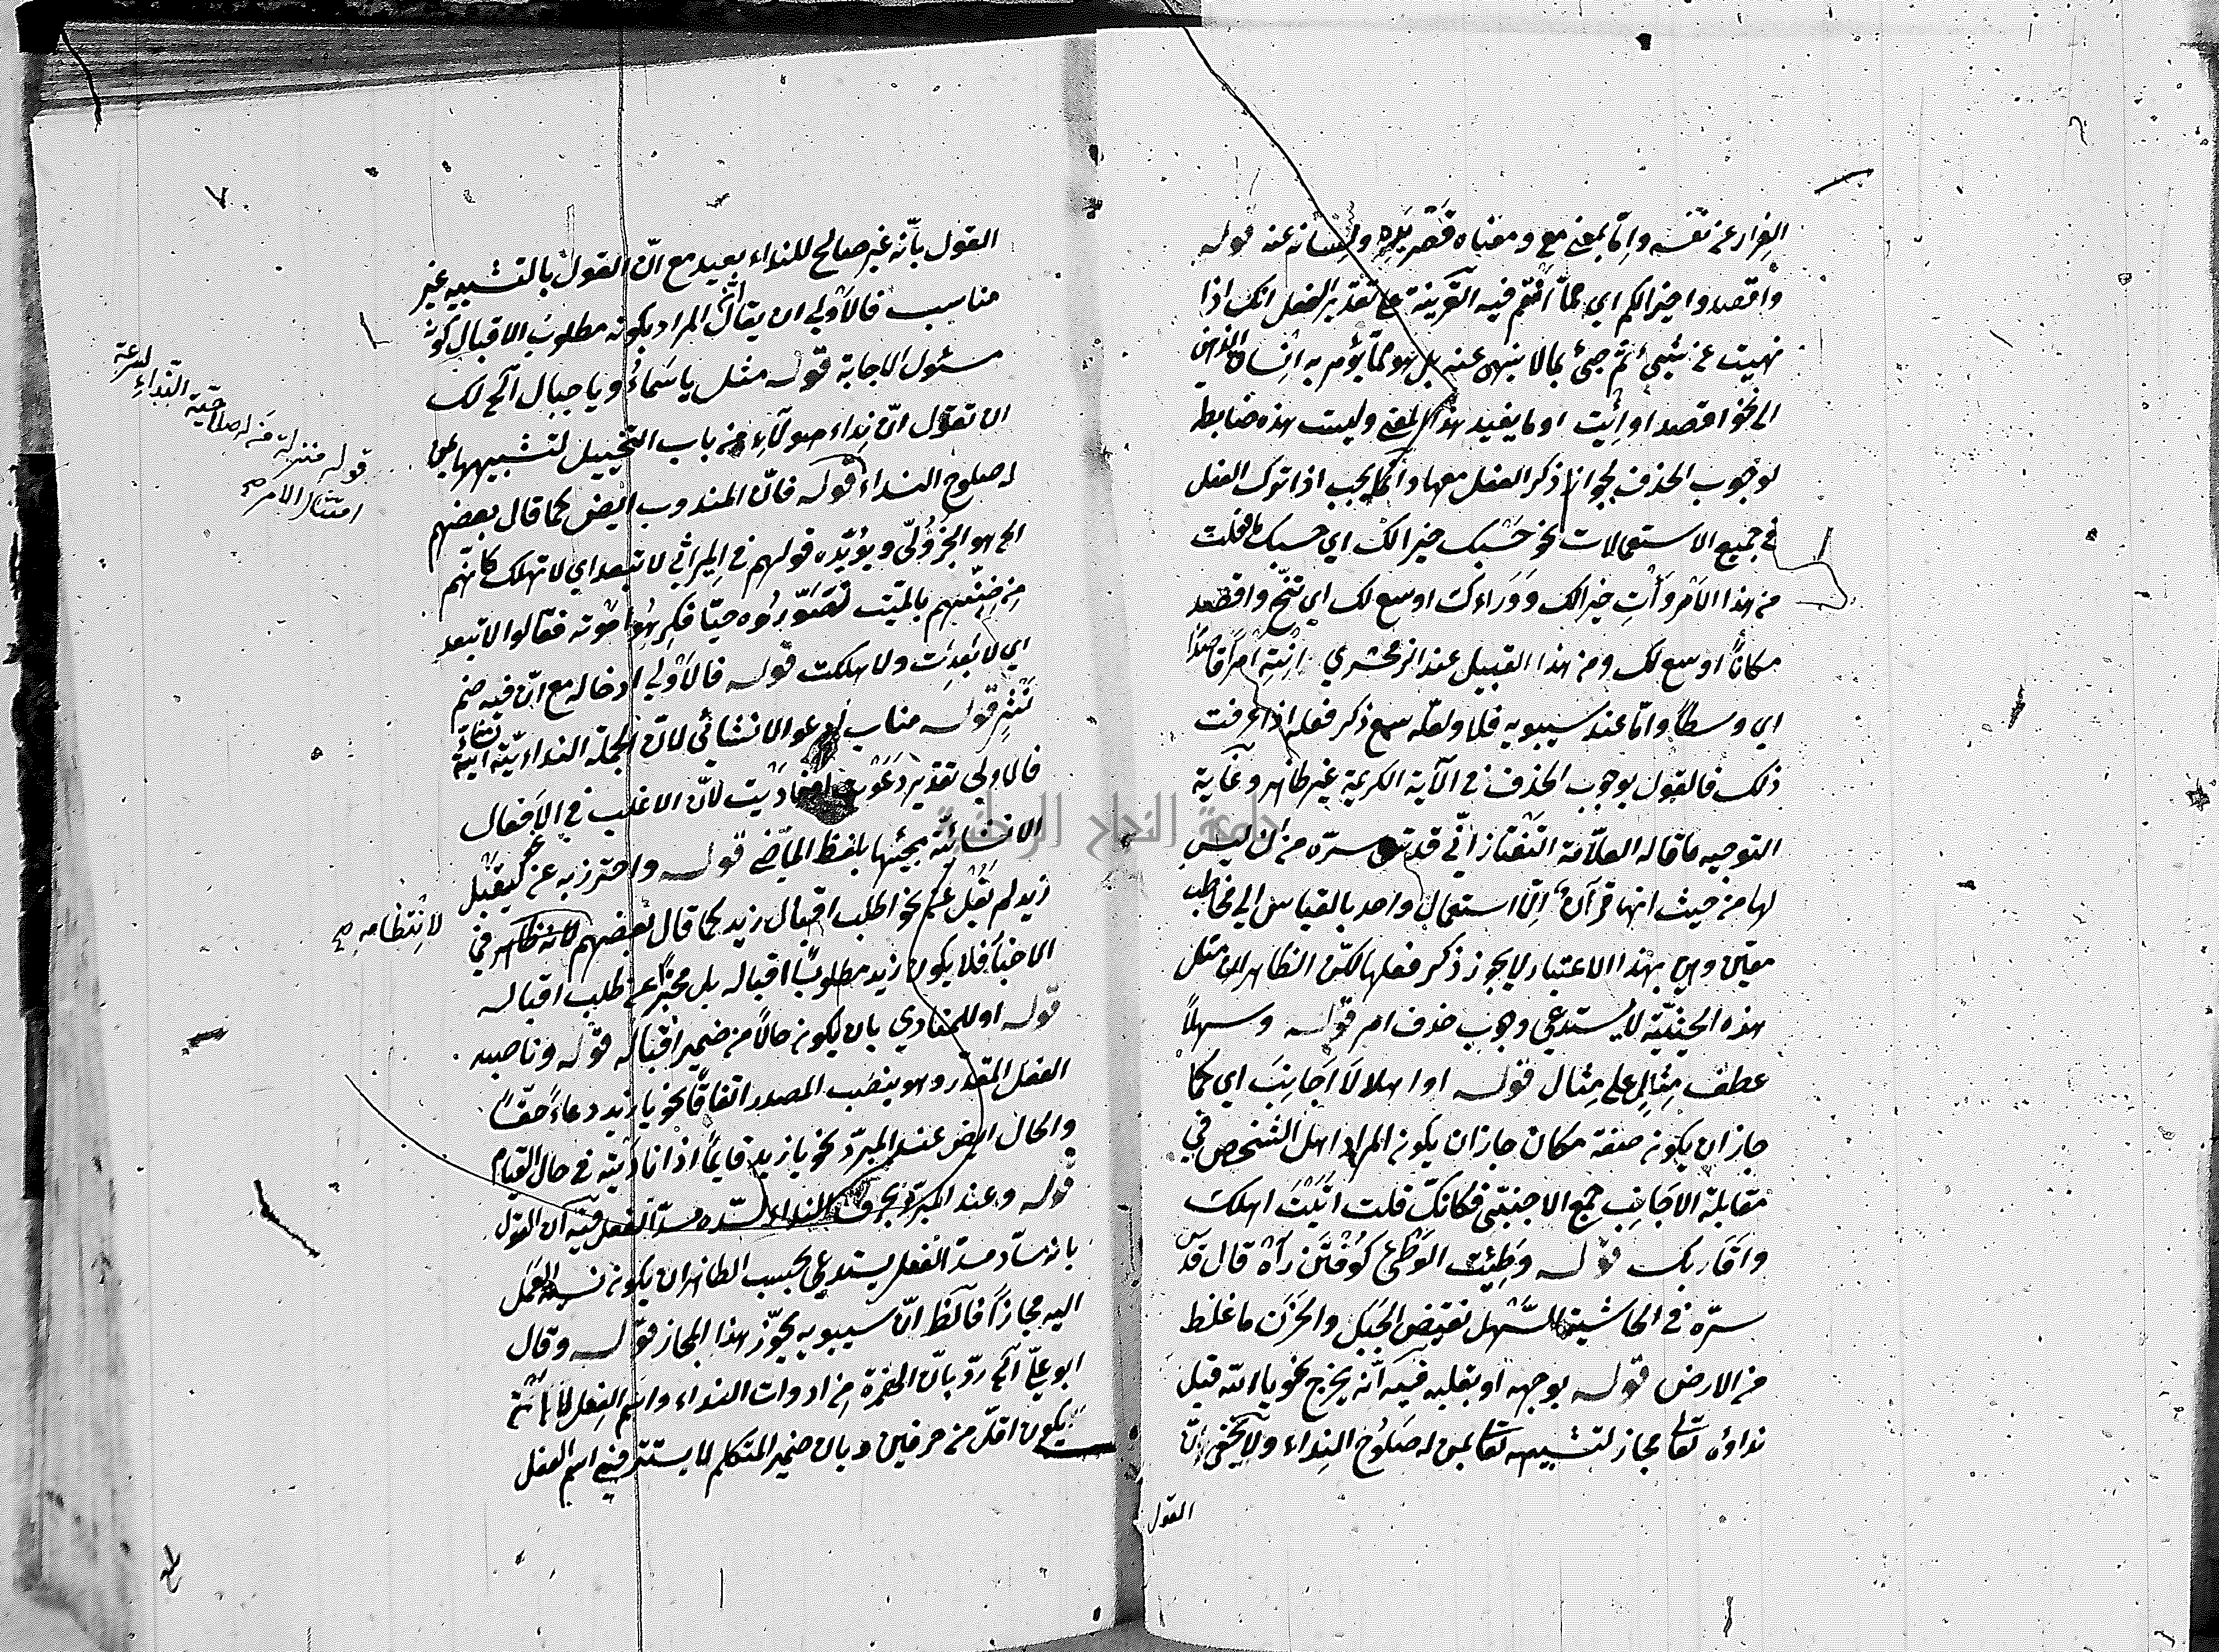 الفرار عن نفسه وامّا بمعنى مع ومعناه قصر يده ولسانه عنه قوله
واقصدوا خيرا لكم اي ممّا انتم فيه القرينة على تقدير الفعل انك اذا
نهيت عن شيئ ثم جيئ بما لا ينهى عنه بل هو ممّا يؤمر به انساق الذهن
الى نحو اقصد او ائت او ما يفيد هذا المعنى وليست هذه ضابط
لوجوب الحذف لجواز ذكر الفعل معها وانّما يجب اذا ترك الفعل
في جميع الاستعمالات نحو حسبك خيرا لك اي حسبك ما فعلت
من هذا الامر وأت خيرا لك ووراءك اوسع لك اي تنحّ واقصد
مكاناً اوسع لك ومن هذا القبيل عند الزمخشري انته امراً قاصداً
اي وسطاً وامّا عند سيبويه فلا ولعلّه سمع ذكر فعله اذا عرفت
ذلك فالقول بوجوب الحذف في الآية الكريمة غير ظاهر وغاية
التوجيه ما قاله العلّامة التفتازانّي قدس سرّه من ان ليس
لها من حيث انها قرآن الّا استعمال واحد بالقياس الى مخاطب
معيّن وهي بهذا الاعتبار لا يجوز ذكر فعلها لكنّ الظاهر ان مثل
هذه الحيثيّة لا يستدعي وجوب حذف امر قوله وسهلاً
عطف مثال على مثال قوله او اهلا لا اجانب اي كما
جاز ان يكون صفة مكان جاز ان يكون المراد اهل الشخص في
مقابلة الاجانب جمع الاجنبيّ فكانك قلت اتيت اهلك
واقاربك قوله وطئت الوطئ قال قدس
سرّه في الحاشية السّهل نقيض الجبل والحزن ما غلظ
من الارض قوله بوجهه او بقلبه فيه انّه يخرج نحو يا الله قيل
نداؤه تعالى مجاز لتشبيهه تعالى بمن له صلوح النداء ولا يخفى انّ
القول
القول بانّه غير صالح للنداء بعيد مع انّ القول بالتشبيه غير
مناسب فالاولى ان يقال انّ المراد بكونه مطلوب الاقبال كونه
مسئول الاجابة قوله مثل يا سماءُ ويا جبال الخ لك
ان تقول انّ نداء هؤلاء من باب التخييل لتشبيهها بمن
له صلوح النداء قوله فانّ المندوب ايضا كما قال بعضهم
الخ هو الجزُوليّ ويؤيّده قولهم في المراثي لا تبعد اي لا تهلك كانّهم
من ضنّهم بالميّت تصوّروه حيّا فكرهوا موته فقالوا لا تبعد
اي لا بعدت ولا هلكت قوله فالاولى ادخاله مع انّ فيه ضم
نشر قوله مناب ادعو الانشائي لانّ الجملة النداءيّة انشائيّة
فالاولى تقدير دعوت او ناديت لانّ الاغلب في الافعال
الانشائيّة مجيئها بلفظ الماضي قوله واحترز به عن نحو ليقبل
زيد لم يقل عن نحو اطلب اقبال زيد كما قال بعضهم لانّه ظاهر في
الاخبار فلا يكون زيد مطلوبًا اقباله بل مخبرًا عن طلب اقباله
قوله او للمنادي بان يكون حالاً من ضمير اقباله قوله وناصبه
الفعل المقدّر وهو ينصب المصدر اتفاقًا نحو يا زيد دعاءً حقًّا
والحال ايضا عند المبرّد نحو يا زيد قايمًا اذا ناديته في حال القيام
قوله وعند المبرّد بحرف النداء لسدّه مسدّ الفعل فيه ان القول
بانه سادّ مسدّ الفعل يستدعي بحسب الظاهر ان يكون نسبة العمل
اليه مجازاً فالظ انّ سيبويه يجوّز هذا المجاز قوله وقال
ابو عليّ الخ ردّ بانّ الهمزة من ادوات النداء واسم الفعل لا
يكون اقلّ من حرفين وبان ضمير المتكلم لا يستتر في اسم الفعل
قوله منزلة من له صلاحية النداء لسرعة
امتثال الامر صح
لانتظامه صح
جامعة النجاح الوطنية